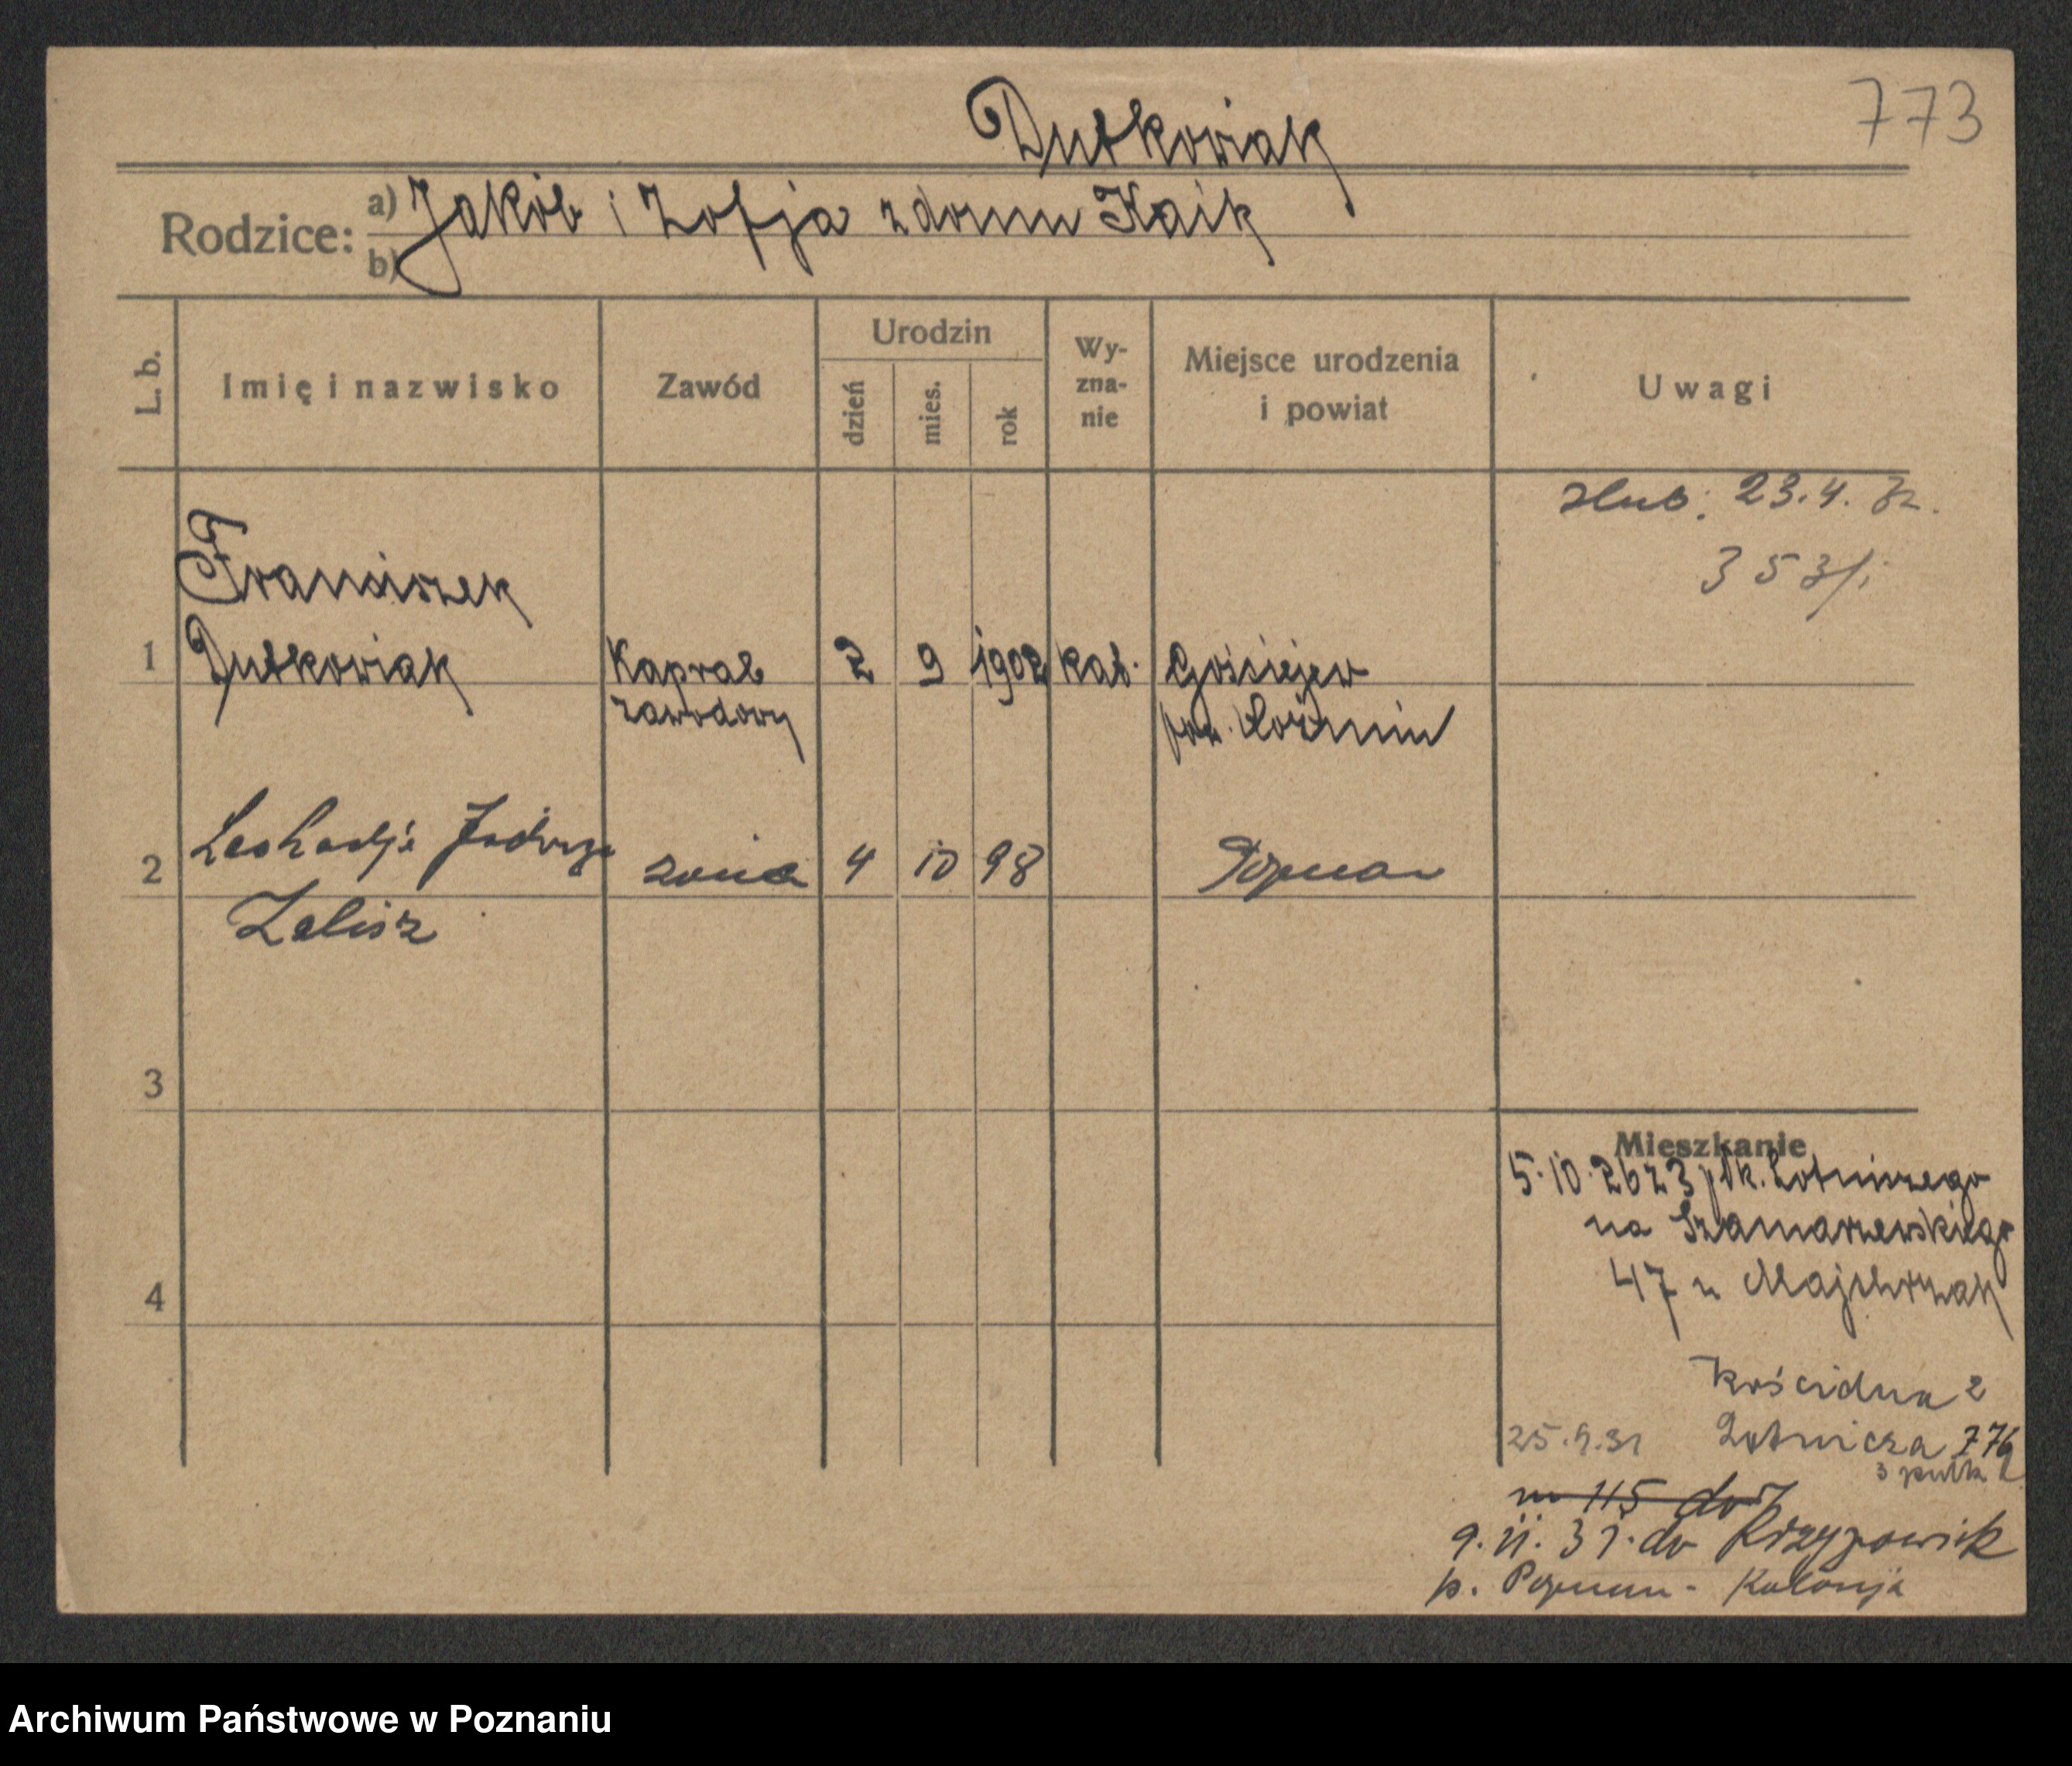 773
Dutkowiak
Rodzice: a) Jakób i Zofja z domu Kaik
b)
L. b. Imię i nazwisko Zawód Urodzin dzień mies. rok Wyznanie Miejsce urodzenia i powiat Uwagi
ślub: 23.4. 32.
353/i
Franciszek
1 Dutkowiak Kapral 2 9 1902 kat. Gościejew
zawodowy pow. Koźmin
2 Jadwiga żona 4 10 98 Poznań
Zelisz
3
Mieszkanie
5.10.26 z 3 plk. Lotniczego
na Szamarzewskiego
47 u Majchrzak
4
Kościelna 2
25.9.31 Lotnicza
3 pułk
m 115 do
9.11.31. do
p. Poznań - Kolonja
Archiwum Państwowe w Poznaniu